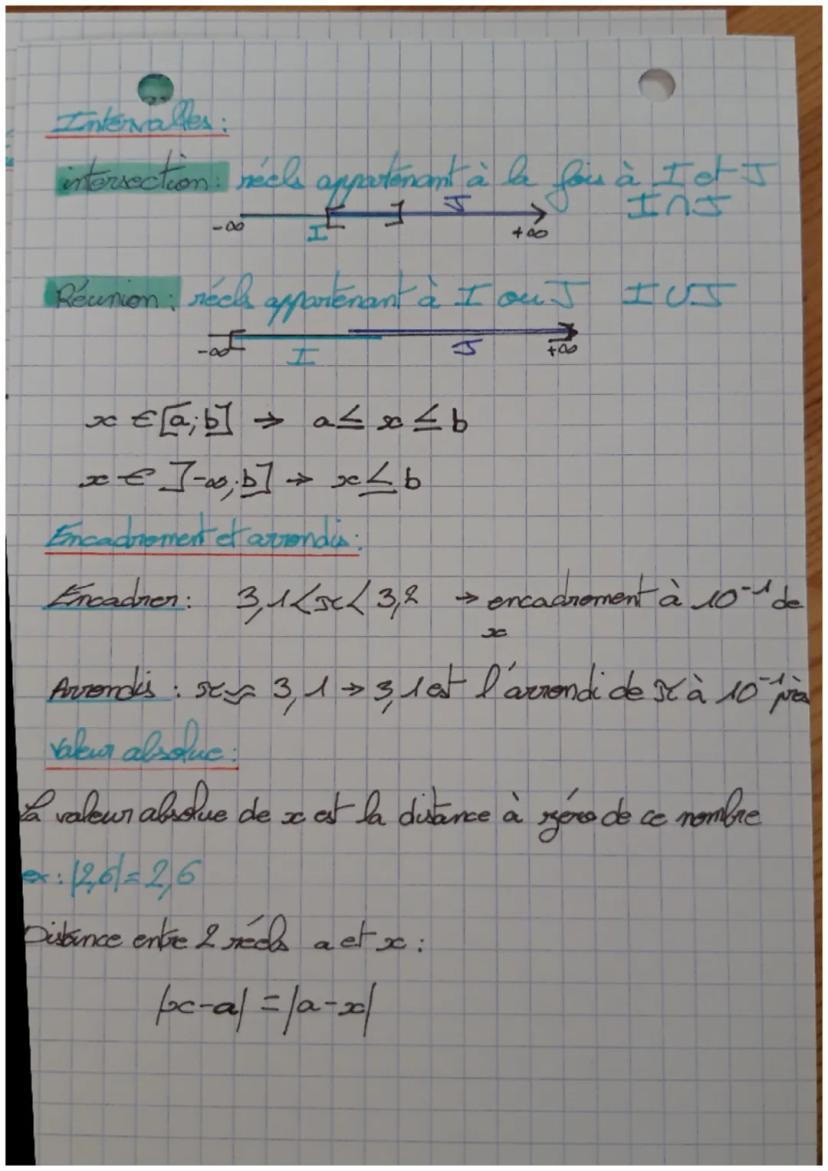 Intervalles :
intersection : réels appartenant à la fois à I et J
I ∩ J
-∞ I [ ] J +∞
Réunion : réels appartenant à I ou J I ∪ J
-∞ [ I J +∞
x ∈ [a;b] → a ≤ x ≤ b
x ∈ ]-∞;b] → x ≤ b
Encadrement et arrondis :
Encadrer : 3,1 < x < 3,2 → encadrement à 10⁻¹ de
x
Arrondis : x ≈ 3,1 → 3,1 est l'arrondi de x à 10⁻¹ près
Valeur absolue :
La valeur absolue de x est la distance à zéro de ce nombre
ex : |2,6| = 2,6
Distance entre 2 réels a et x :
|x-a| = |a-x|